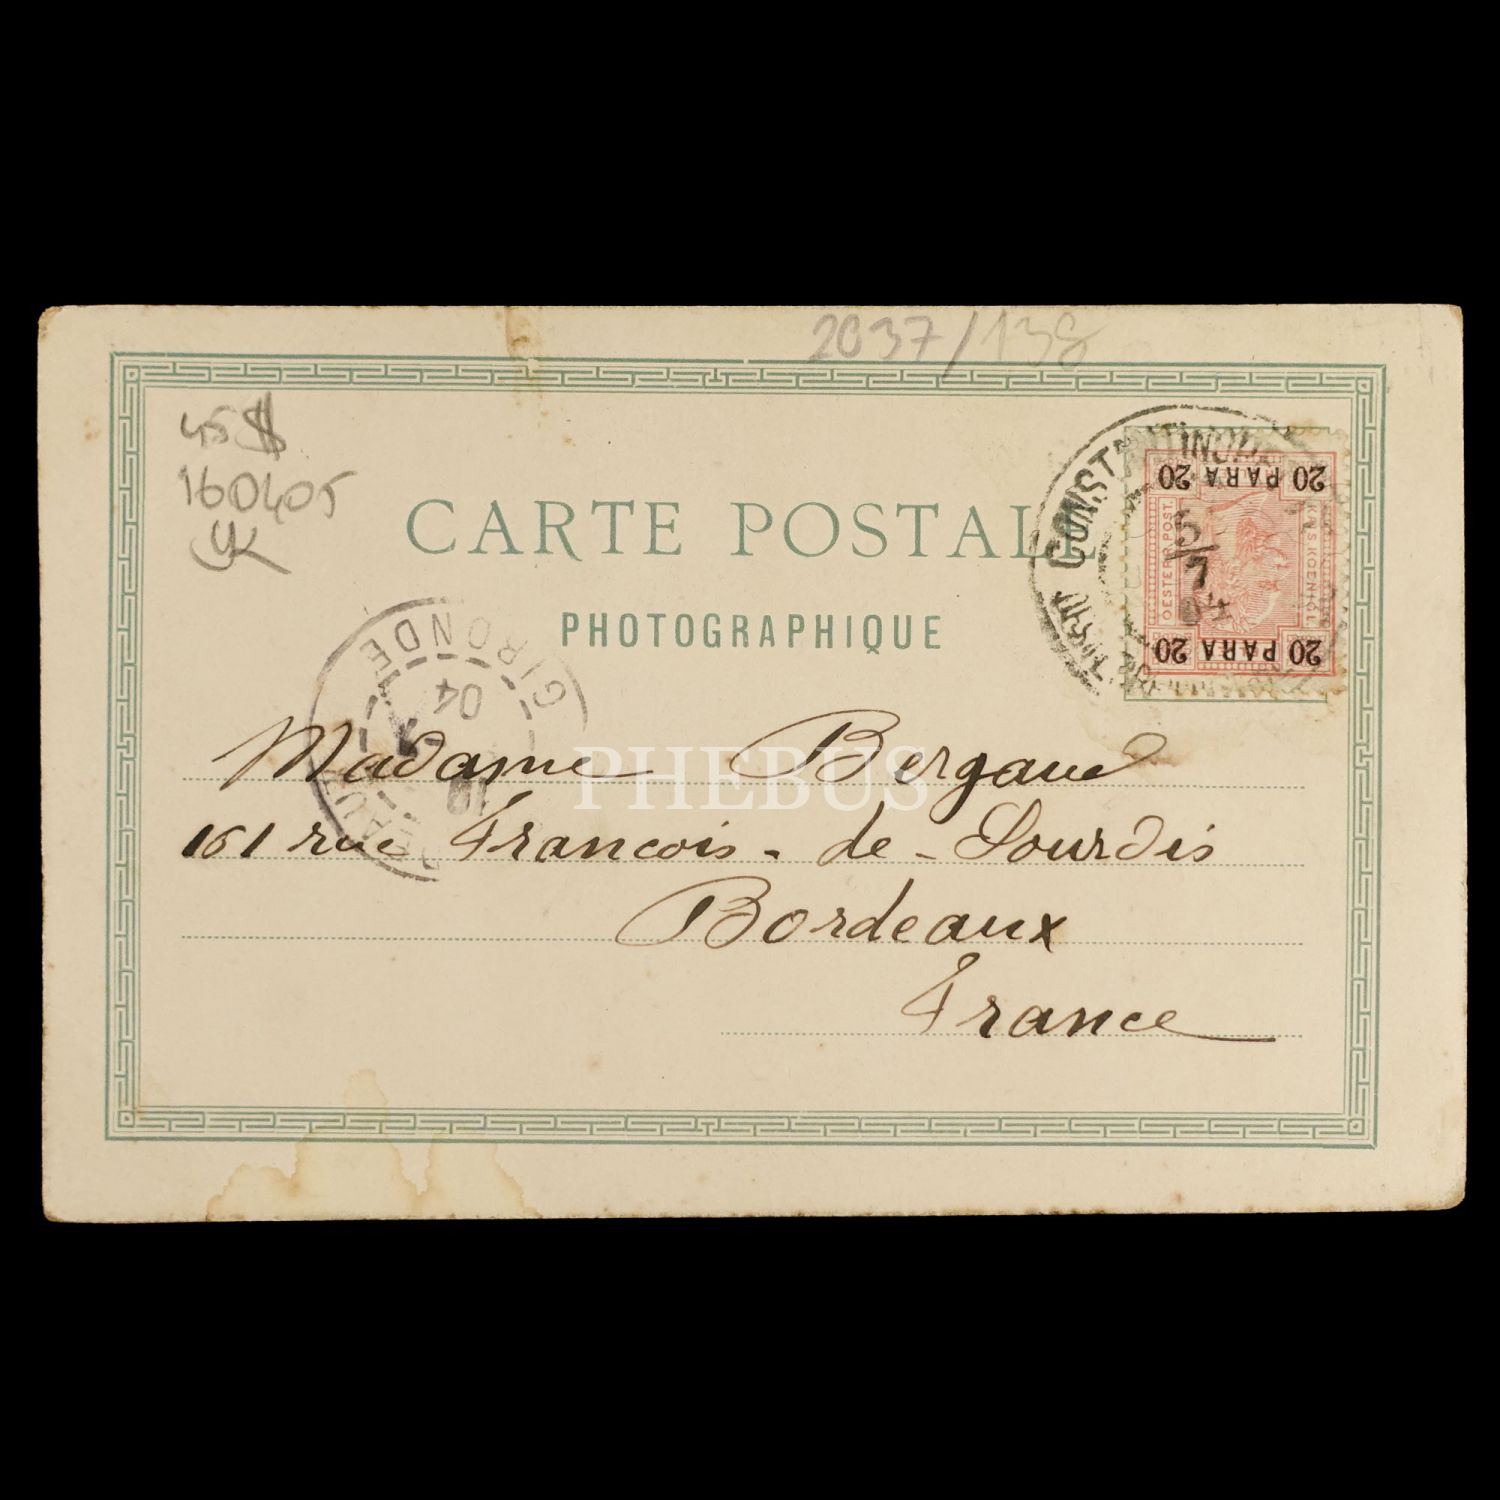 2037/138
45$
160405
CARTE POSTALE
PHOTOGRAPHIQUE
CONSTANTINOPEL
5/7
04
20 PARA 20
OESTERR. POST.
20 PARA 20
GIRONDE
04
PHEBUS
Madame Bergaud
161 rue Francois - de - Sourdis
Bordeaux
France